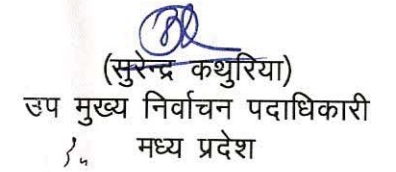 (सुरेन्द्र कथुरिया)
उप मुख्य निर्वाचन पदाधिकारी
मध्य प्रदेश